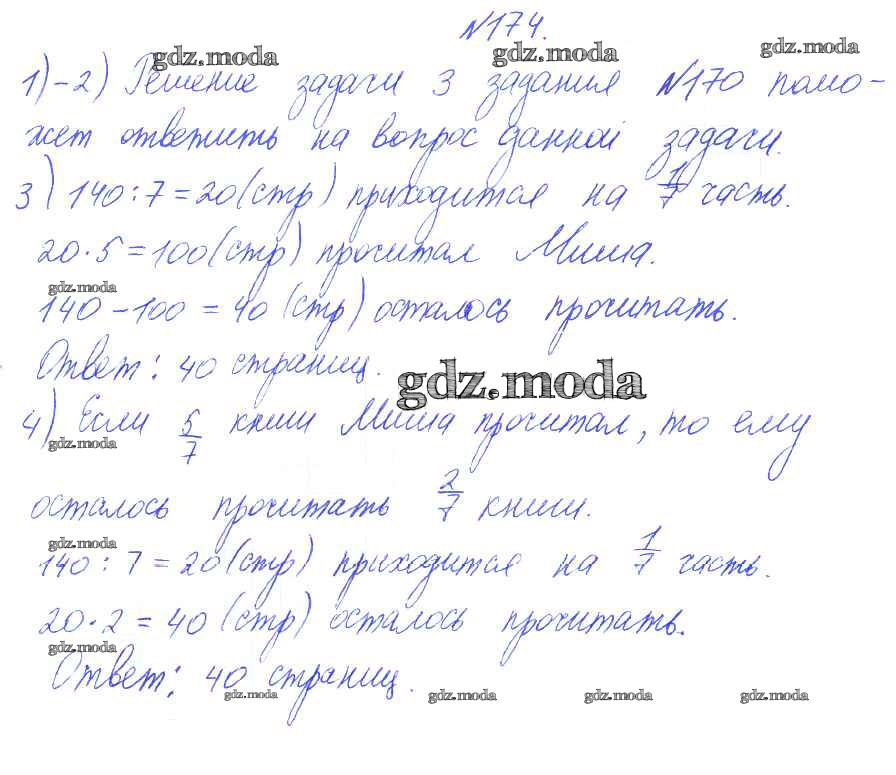 №174.
gdz.moda gdz.moda gdz.moda
1)-2) Решение задачи 3 задания №170 помо-
жет ответить на вопрос данной задачи.
3) 140:7=20(стр) приходится на 1/7 часть.
20·5=100(стр) прочитал Миша.
gdz.moda
140-100=40(стр) осталось прочитать.
Ответ: 40 страниц.
gdz.moda
4) Если 5/7 книги Миша прочитал, то ему
gdz.moda
осталось прочитать 2/7 книги.
gdz.moda
140:7=20(стр) приходится на 1/7 часть.
20·2=40(стр) осталось прочитать.
gdz.moda
Ответ: 40 страниц.
gdz.moda gdz.moda gdz.moda gdz.moda